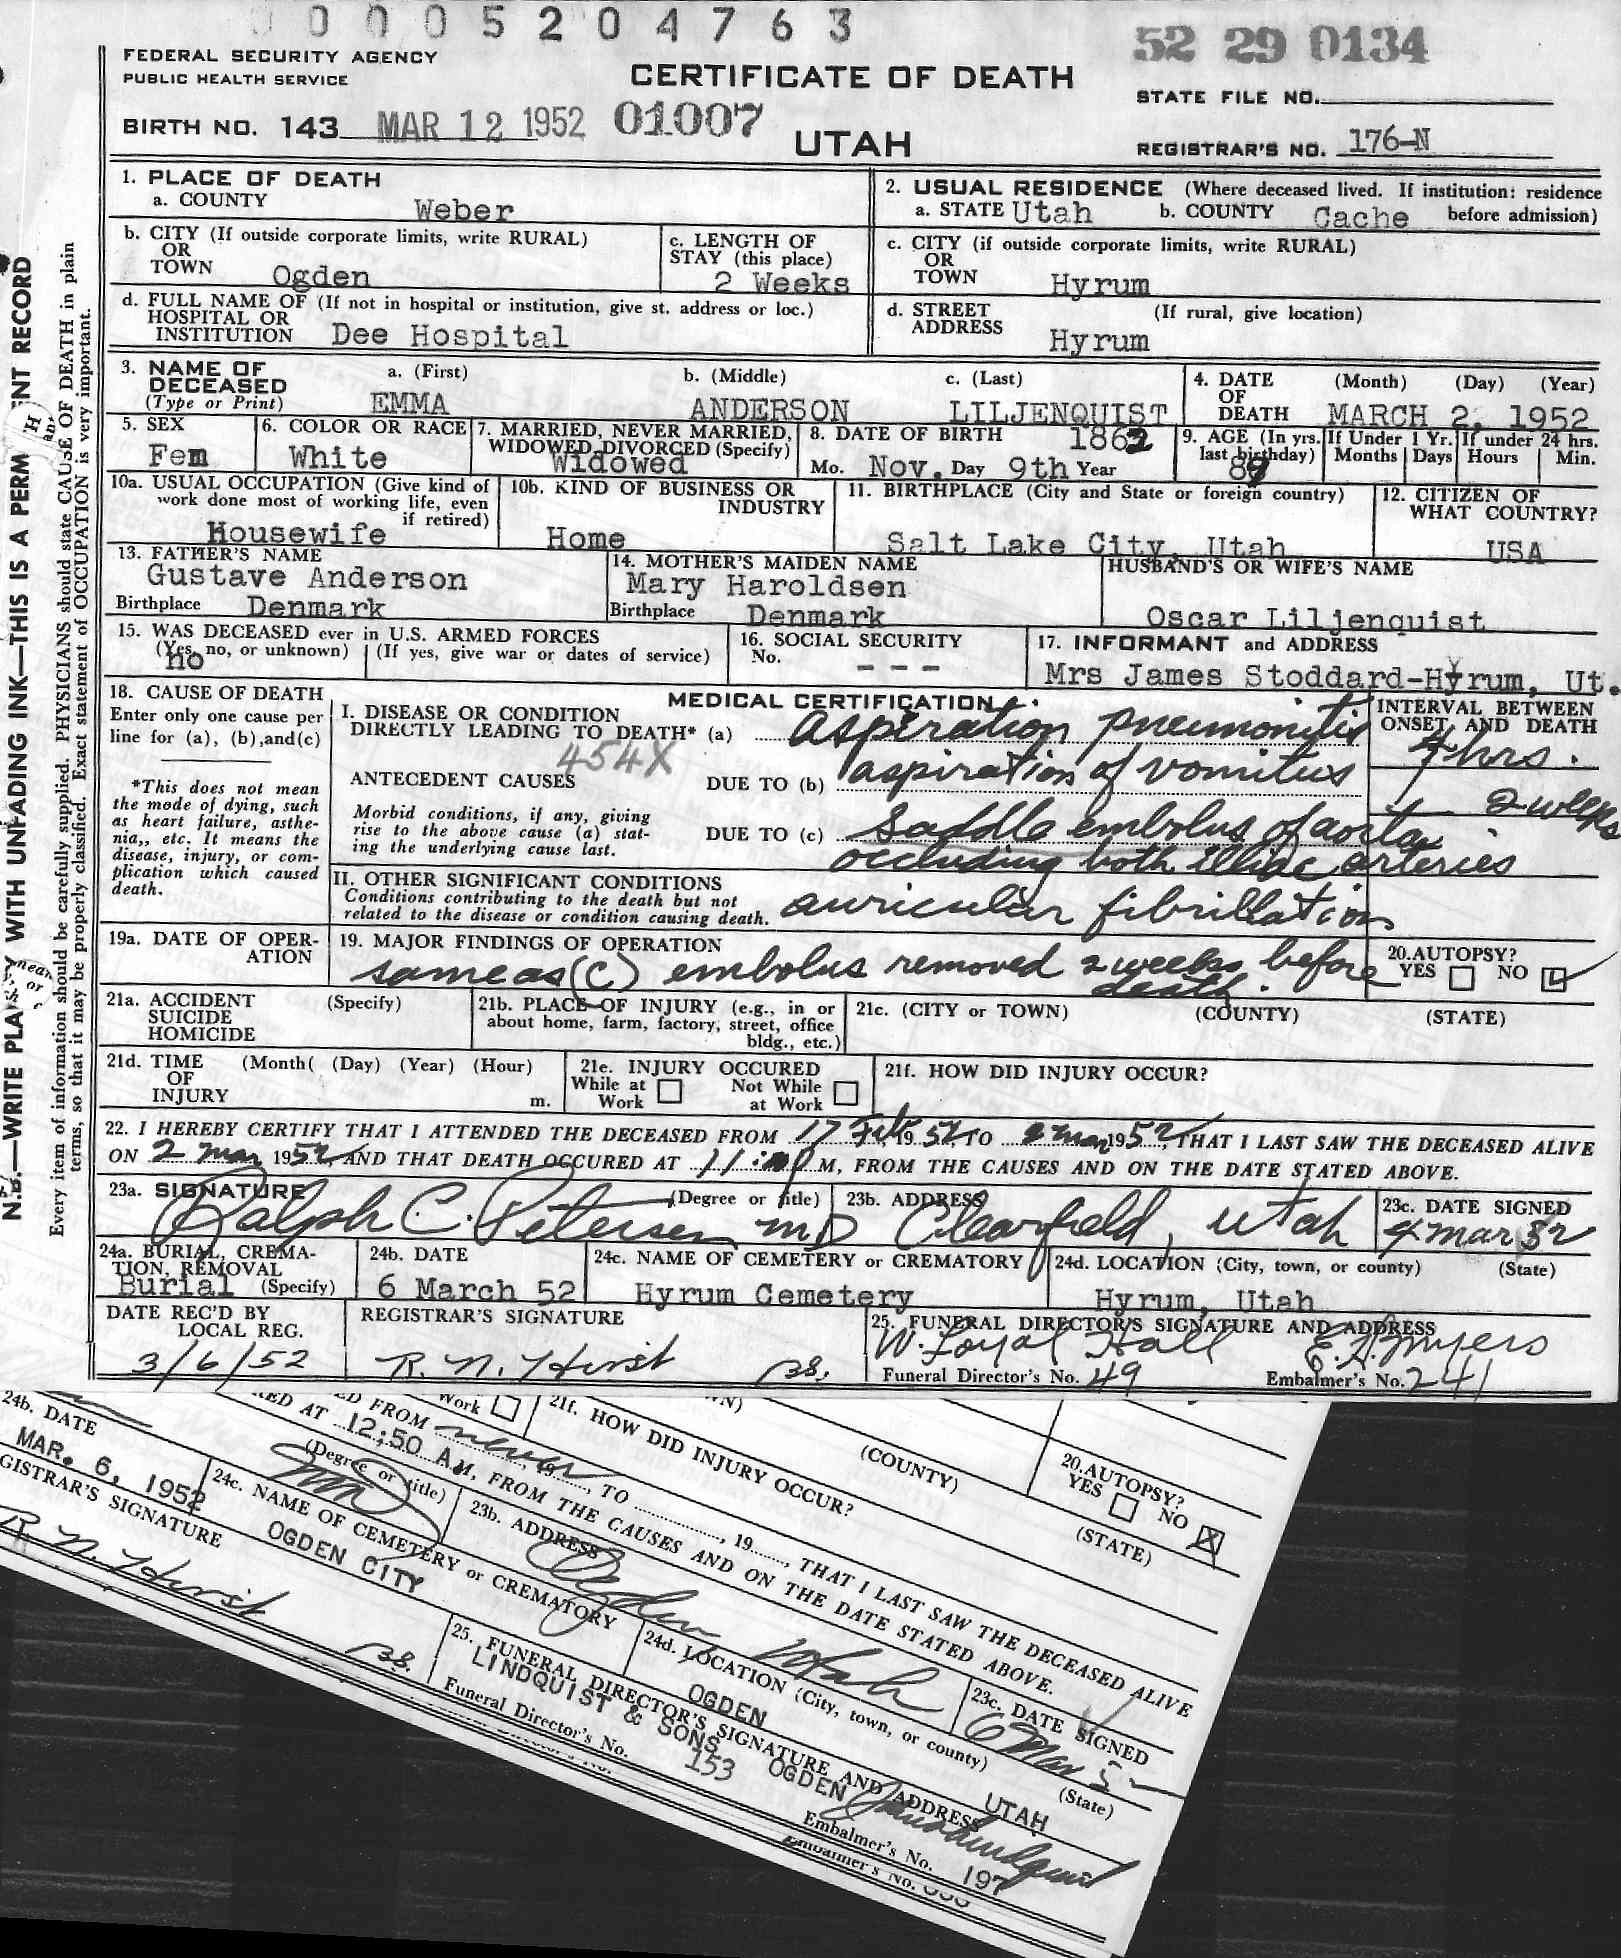 0005204763
52 29 0134
FEDERAL SECURITY AGENCY
PUBLIC HEALTH SERVICE
CERTIFICATE OF DEATH
STATE FILE NO.
BIRTH NO. 143 MAR 12 1952 01007
UTAH
REGISTRAR'S NO. 176-N
1. PLACE OF DEATH
a. COUNTY Weber
2. USUAL RESIDENCE (Where deceased lived. If institution: residence before admission)
a. STATE Utah b. COUNTY Cache
b. CITY (If outside corporate limits, write RURAL) OR TOWN Ogden
c. LENGTH OF STAY (this place) 2 Weeks
c. CITY (if outside corporate limits, write RURAL) OR TOWN Hyrum
d. FULL NAME OF (If not in hospital or institution, give st. address or loc.) HOSPITAL OR INSTITUTION Dee Hospital
d. STREET ADDRESS (If rural, give location) Hyrum
3. NAME OF DECEASED (Type or Print) a. (First) EMMA b. (Middle) ANDERSON c. (Last) LILJENQUIST
4. DATE OF DEATH (Month) (Day) (Year) MARCH 2, 1952
5. SEX Fem
6. COLOR OR RACE White
7. MARRIED, NEVER MARRIED, WIDOWED, DIVORCED (Specify) Widowed
8. DATE OF BIRTH 1862 Mo. Nov. Day 9th Year
9. AGE (In yrs. last birthday) 89
If Under 1 Yr. Months Days
If under 24 hrs. Hours Min.
10a. USUAL OCCUPATION (Give kind of work done most of working life, even if retired) Housewife
10b. KIND OF BUSINESS OR INDUSTRY Home
11. BIRTHPLACE (City and State or foreign country) Salt Lake City, Utah
12. CITIZEN OF WHAT COUNTRY? USA
13. FATHER'S NAME Gustave Anderson
Birthplace Denmark
14. MOTHER'S MAIDEN NAME Mary Haroldsen
Birthplace Denmark
HUSBAND'S OR WIFE'S NAME Oscar Liljenquist
15. WAS DECEASED ever in U.S. ARMED FORCES (Yes, no, or unknown) (If yes, give war or dates of service) no
16. SOCIAL SECURITY No. - - -
17. INFORMANT and ADDRESS Mrs James Stoddard-Hyrum, Ut.
18. CAUSE OF DEATH
Enter only one cause per line for (a), (b), and (c)
*This does not mean the mode of dying, such as heart failure, asthenia, etc. It means the disease, injury, or complication which caused death.
MEDICAL CERTIFICATION
INTERVAL BETWEEN ONSET AND DEATH
I. DISEASE OR CONDITION DIRECTLY LEADING TO DEATH* (a) aspiration pneumonitis 4 hrs.
454X
ANTECEDENT CAUSES
DUE TO (b) aspiration of vomitus
Morbid conditions, if any, giving rise to the above cause (a) stating the underlying cause last.
DUE TO (c) Saddle embolus of aorta 2 weeks
occluding both illiac arteries
II. OTHER SIGNIFICANT CONDITIONS
Conditions contributing to the death but not related to the disease or condition causing death.
auricular fibrillation
19a. DATE OF OPERATION
19. MAJOR FINDINGS OF OPERATION
same as (c) embolus removed 2 weeks before death.
20. AUTOPSY? YES NO
21a. ACCIDENT SUICIDE HOMICIDE (Specify)
21b. PLACE OF INJURY (e.g., in or about home, farm, factory, street, office bldg., etc.)
21c. (CITY or TOWN) (COUNTY) (STATE)
21d. TIME OF INJURY (Month( (Day) (Year) (Hour) m.
21e. INJURY OCCURED While at Work Not While at Work
21f. HOW DID INJURY OCCUR?
22. I HEREBY CERTIFY THAT I ATTENDED THE DECEASED FROM 17 Feb 1952 TO 2 Mar 1952, THAT I LAST SAW THE DECEASED ALIVE
ON 2 Mar 1952, AND THAT DEATH OCCURED AT P M, FROM THE CAUSES AND ON THE DATE STATED ABOVE.
23a. SIGNATURE (Degree or title) Ralph C. Petersen MD
23b. ADDRESS Clearfield, Utah
23c. DATE SIGNED 4 Mar 52
24a. BURIAL, CREMATION, REMOVAL (Specify) Burial
24b. DATE 6 March 52
24c. NAME OF CEMETERY or CREMATORY Hyrum Cemetery
24d. LOCATION (City, town, or county) (State) Hyrum, Utah
DATE REC'D BY LOCAL REG. 3/6/52
REGISTRAR'S SIGNATURE R. N. Hirst BS.
25. FUNERAL DIRECTOR'S SIGNATURE AND ADDRESS W. Loyal Hall E. A. Myers
Funeral Director's No. 49
Embalmer's No. 241
N.B.—WRITE PLAINLY WITH UNFADING INK—THIS IS A PERMANENT RECORD
Every item of information should be carefully supplied. PHYSICIANS should state CAUSE OF DEATH in plain
terms, so that it may be properly classified. Exact statement of OCCUPATION is very important.
Work
21f. HOW DID INJURY OCCUR?
(COUNTY)
(STATE)
20. AUTOPSY? YES NO X
ED FROM never, 19, TO, 19, THAT I LAST SAW THE DECEASED ALIVE
RED AT 12:50 A.M, FROM THE CAUSES AND ON THE DATE STATED ABOVE.
(Degree or title) MD
23b. ADDRESS Ogden Utah
23c. DATE SIGNED 6 Mar 52
24b. DATE MAR. 6, 1952
24c. NAME OF CEMETERY or CREMATORY OGDEN CITY
24d. LOCATION (City, town, or county) (State) OGDEN UTAH
GISTRAR'S SIGNATURE R. N. Hirst BS.
25. FUNERAL DIRECTOR'S SIGNATURE AND ADDRESS
LINDQUIST & SONS OGDEN
Funeral Director's No. 153
Embalmer's No. 197
Embalmer's No.